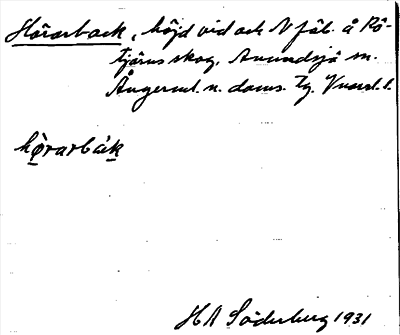 Hörarback, höjd vid och N fäb. å Rö-
tjärns skog, Anundsjö sn.
Ångerml. n. doms. Tg. Vnorrl. l.
hø̱rarbáḵ
HA Söderberg 1931